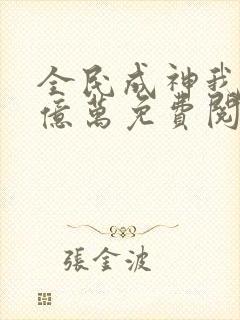 全民成神我
億萬免費閱
張金波